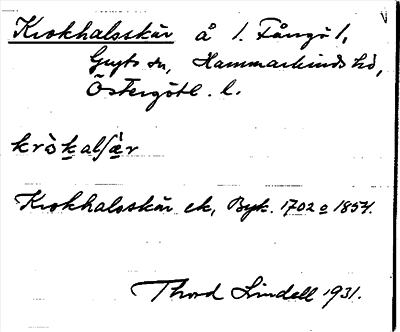 Krokhalsskär å l. Fångö 1,
Gryts sn, Hammarkinds hd,
Östergötl. l.
kròkalʃæ̀r
Krokhalsskär ek, Byk. 1702 o 1854.
Thord Lindell 1931.